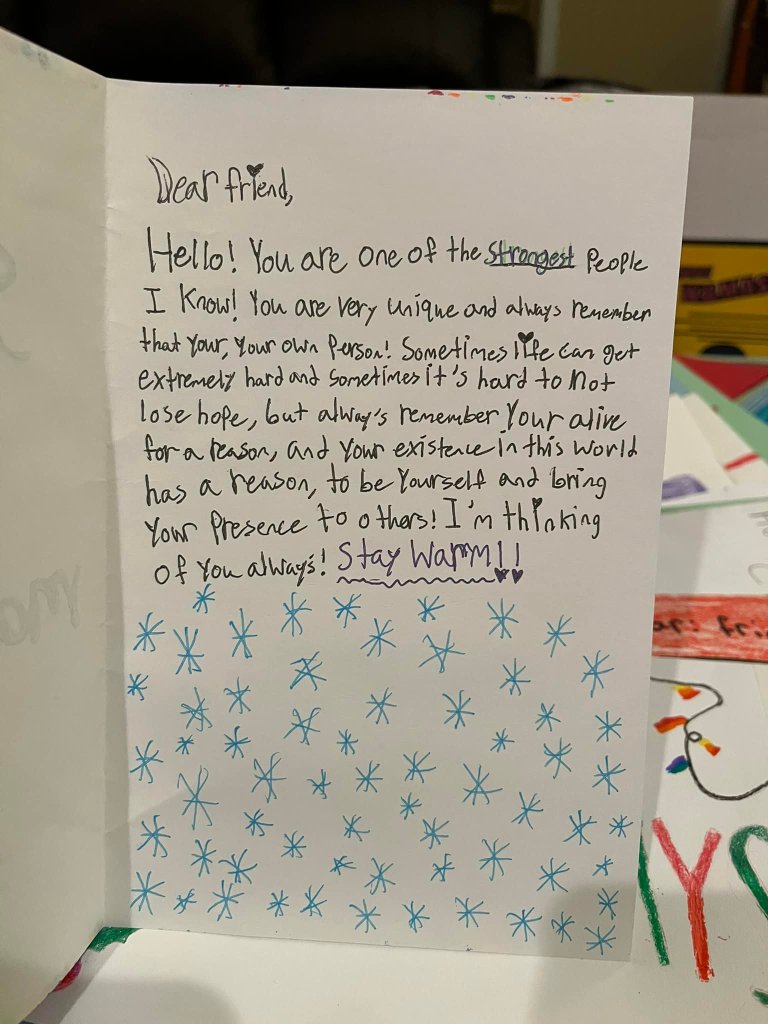 Dear friend,
Hello! You are one of the strongest People
I Know! You are very unique and always remember
that your, your own person! Sometimes life can get
extremely hard and sometimes it's hard to not
lose hope, but always remember your alive
for a reason, and your existence in this world
has a reason, to be yourself and bring
your presence to others! I'm thinking
of you always! Stay Warm!!
ar: fri
YS